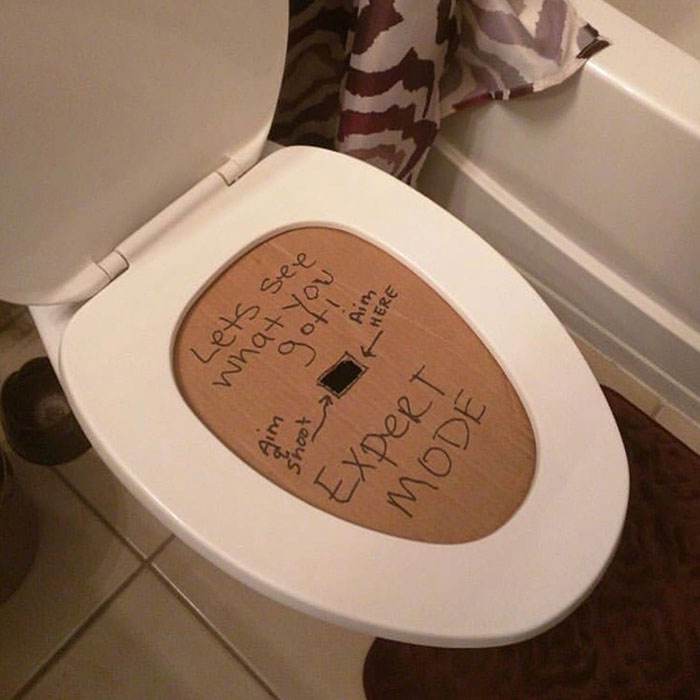 Lets see
what you
got!
Aim
HERE
Aim
&
Shoot
EXPERT
MODE